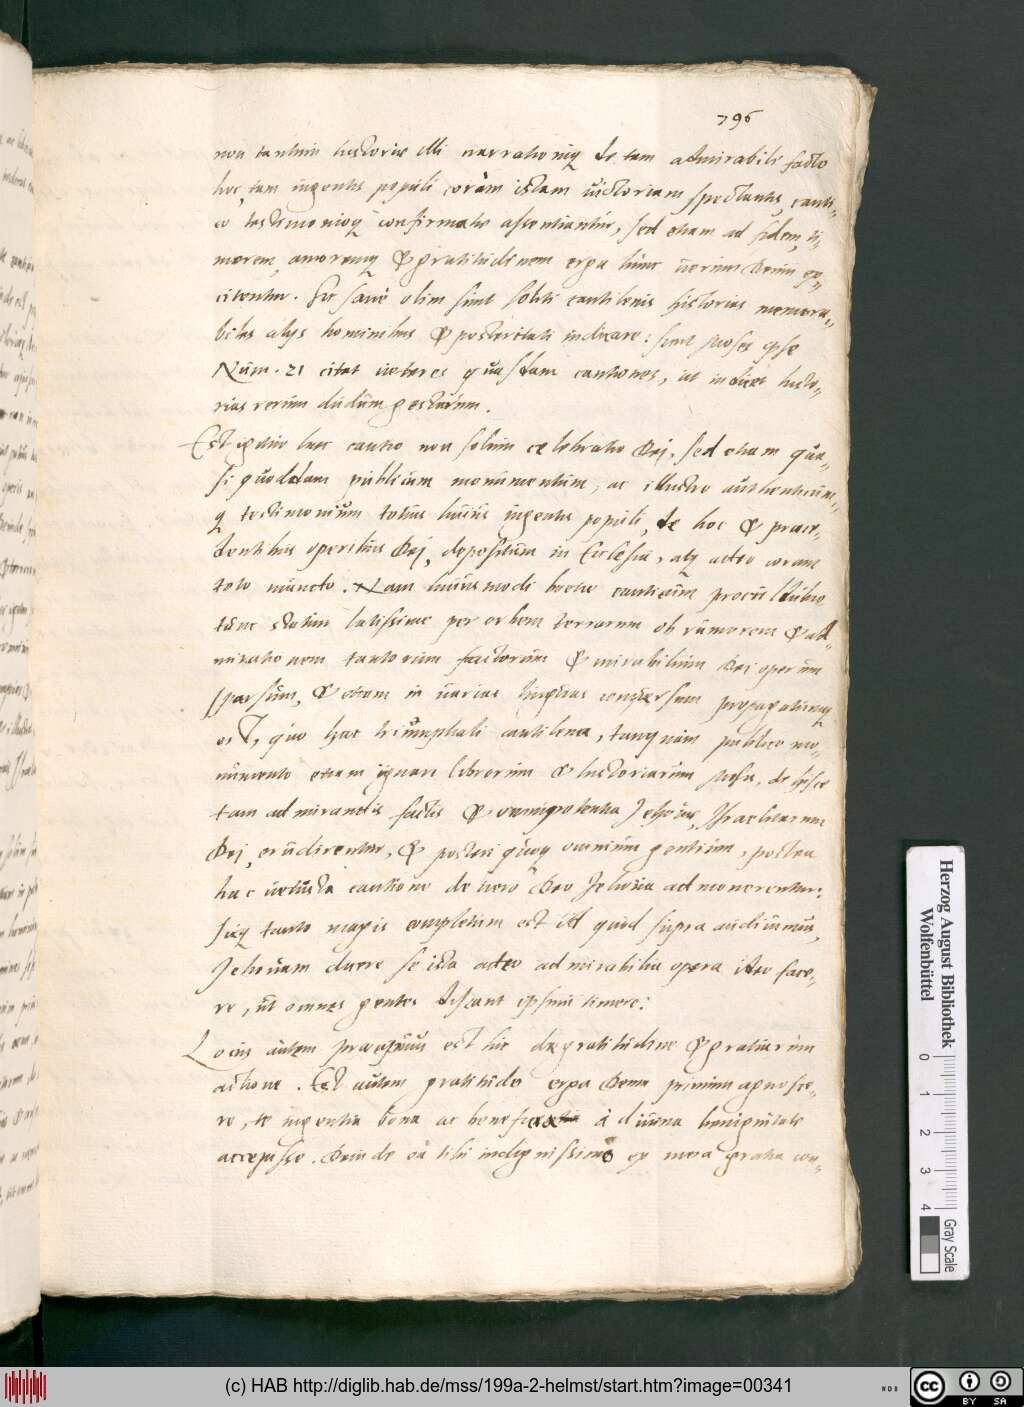 796
non tantum historiæ illi narrationiq; de tam admirabili facto
hoc, tam ingentis populi coram istam victoriam spectantis, canti-
co testimonioq; confirmatæ assentiantur, sed etiam ad fidem, ti-
morem, amoremq; & gratitudinem erga hunc verum Deum ex-
citentur. Sic sanè olim sunt soliti cantilenis historias memora-
biles alijs hominibus & posteritati indicare: sicut Moses ipse
Num. 21 citat veteres quasdam cantiones, ut indices histo-
rias rerum dudum gestarum.
Est igitur hæc cantio non solum celebratio Dei, sed etiam qua-
si quoddam publicum monumentum, ac illustre authenticum-
q; testimonium totius huius ingentis populi, de hoc & præce-
dentibus operibus Dei, depositum in Ecclesia, atq; adeo coram
toto mundo. Nam huiusmodi breve canticum procul dubio
tunc statim latissime per orbem terrarum ob rumorem & ad-
mirationem tantorum factorum & mirabilium Dei operum
sparsum, & etiam in varias linguas conversum propagatumq;
est, quo hac triumphali cantilena, tanquam publico mo-
numento etiam ignari librorum & historiarum Mosis, de hisce
tam admirandis factis & omnipotentia Jehovæ, Israelitarum
Dei, erudirentur, & posteri quoq; omnium gentium, postea
hac vetusta cantione de vero Deo Jehova admonerentur:
Sicq; tanto magis completum est id quod supra audivimus,
Jehovam dicere se ista adeo admirabilia opera ideo face-
re, ut omnes gentes discant ipsum timere:
Locus autem præcipuus est hic de gratitudine & gratiarum
actione. Est autem gratitudo erga Deum primum agnosce-
re, te ingentia bona ac beneficia à divina benignitate
accepisse. Deinde ea tibi indignissimo ex mera gratia con-
Herzog August Bibliothek
Wolfenbüttel
0 1 2 3 4
Gray Scale
(c) HAB http://diglib.hab.de/mss/199a-2-helmst/start.htm?image=00341
NDB
cc BY SA